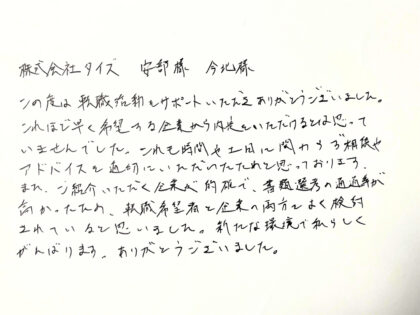 株式会社タイズ 安部様 今北様
この度は転職活動をサポートいただきありがとうございました。
これほど早く希望する企業から内定をいただけるとは思って
いませんでした。これも時間や土日に関わらず相談や
アドバイスを適切にいただいたためと思っております。
また、ご紹介いただく企業が的確で、書類選考の通過率が
高かったため、転職希望者と企業の両方をよく解約
されていると思いました。新たな環境で私らしく
がんばります。ありがとうございました。